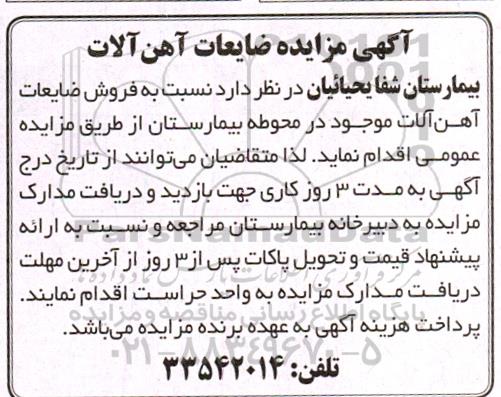 آگهی مزایده ضایعات آهن آلات
بیمارستان شفا یحیائیان در نظر دارد نسبت به فروش ضایعات
آهن‌آلات موجود در محوطه بیمارستان از طریق مزایده
عمومی اقدام نماید. لذا متقاضیان می‌توانند از تاریخ درج
آگهی به مدت ۳ روز کاری جهت بازدید و دریافت مدارک
مزایده به دبیرخانه بیمارستان مراجعه و نسبت به ارائه
پیشنهاد قیمت و تحویل پاکات پس از ۳ روز از آخرین مهلت
دریافت مدارک مزایده به واحد حراست اقدام نمایند.
پرداخت هزینه آگهی به عهده برنده مزایده می‌باشد.
تلفن: ۳۳۵۴۲۰۱۴
ParsNamadData
پایگاه اطلاع رسانی مناقصه و مزایده
۰۲۱-۸۸۳۴۹۶۷۰-۵